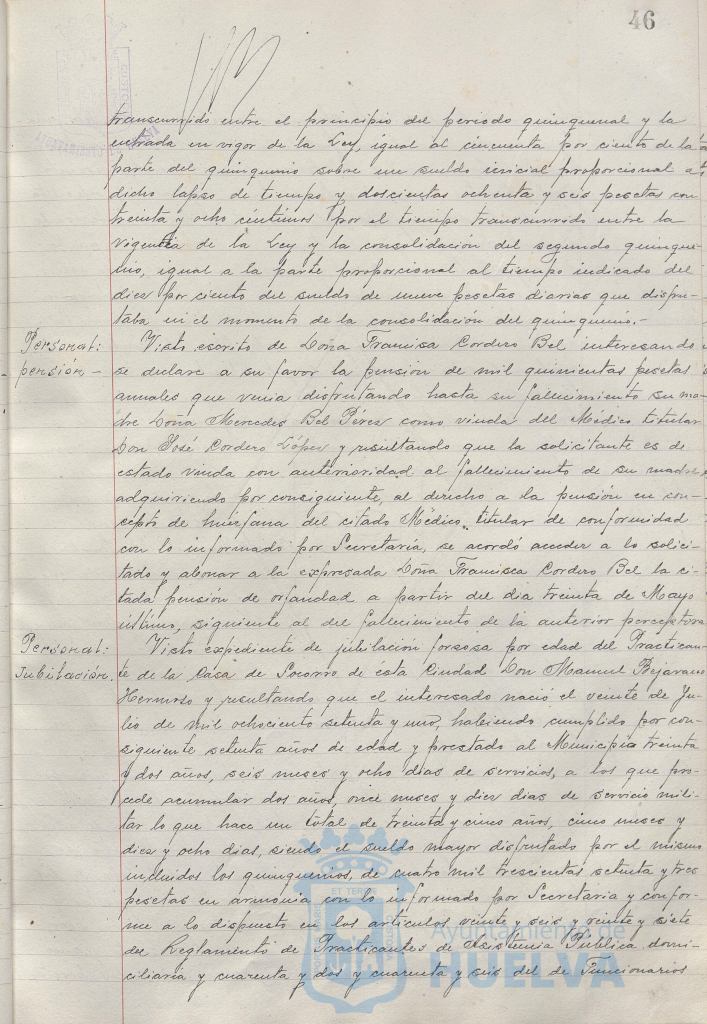 46
transcurrido entre el principio del periodo quinquenal y la
entrada en vigor de la Ley, igual al cincuenta por ciento de la
parte del quinquenio sobre un sueldo inicial proporcional a
dicho lapso de tiempo y doscientas ochenta y seis pesetas con
treinta y ocho céntimos por el tiempo transcurrido entre la
vigencia de la Ley y la consolidación del segundo quinque-
nio, igual a la parte proporcional al tiempo indicado del
diez por ciento del sueldo de nueve pesetas diarias que disfru-
taba en el momento de la consolidación del quinquenio.-
Personal:
pensión -
Visto escrito de Doña Francisca Cordero Bel interesando
se declare a su favor la pensión de mil quinientas pesetas
anuales que venia disfrutando hasta su fallecimiento su ma-
dre Doña Mercedes Bel Pérez como viuda del Médico titular
Don José Cordero López y resultando que la solicitante es de
estado viuda con anterioridad al fallecimiento de su madre
adquiriendo por consiguiente, al derecho a la pensión en con-
cepto de huérfana del citado Médico titular de conformidad
con lo informado por Secretaría, se acordó acceder a lo solici-
tado y abonar a la expresada Doña Francisca Cordero Bel la ci-
tada pensión de orfandad a partir del dia treinta de Mayo
último, siguiente al del fallecimiento de la anterior perceptora
Personal:
Jubilación.
Visto expediente de jubilación forzosa por edad del Practican-
te de la Casa de Socorro de ésta Ciudad Don Manuel Bejarano
Hermoso y resultando que el interesado nació el veinte de Ju-
lio de mil ochociento setenta y uno, habiendo cumplido por con-
siguiente setenta años de edad y prestado al Municipio treinta
y dos años, seis meses y ocho dias de servicios, a los que pro-
cede acumular dos años, once meses y diez dias de servicio mili-
tar lo que hace un total de treinta y cinco años, cinco meses y
diez y ocho dias, siendo el sueldo mayor disfrutado por el mismo
incluidos los quinquenios, de cuatro mil trescientas setenta y tres
pesetas en armonia con lo informado por Secretaria y confor-
me a lo dispuesto en los articulos veinte y seis y veinte y siete
del Reglamento de Practicantes de Asistencia Publica domi-
ciliaria y cuarenta y dos y cuarenta y seis del de Funcionarios
Ayuntamiento de
HUELVA